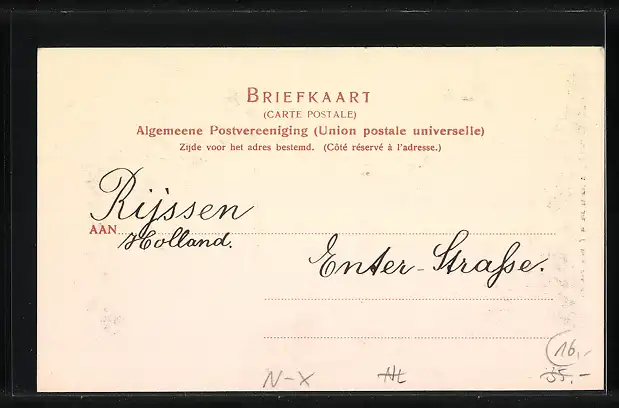 BRIEFKAART
(CARTE POSTALE)
Algemeene Postvereeniging (Union postale universelle)
Zijde voor het adres bestemd. (Côté réservé à l'adresse.)
Rijssen
AAN
Holland.
Enter-Straße.
16,-
N-X
NL
35.-